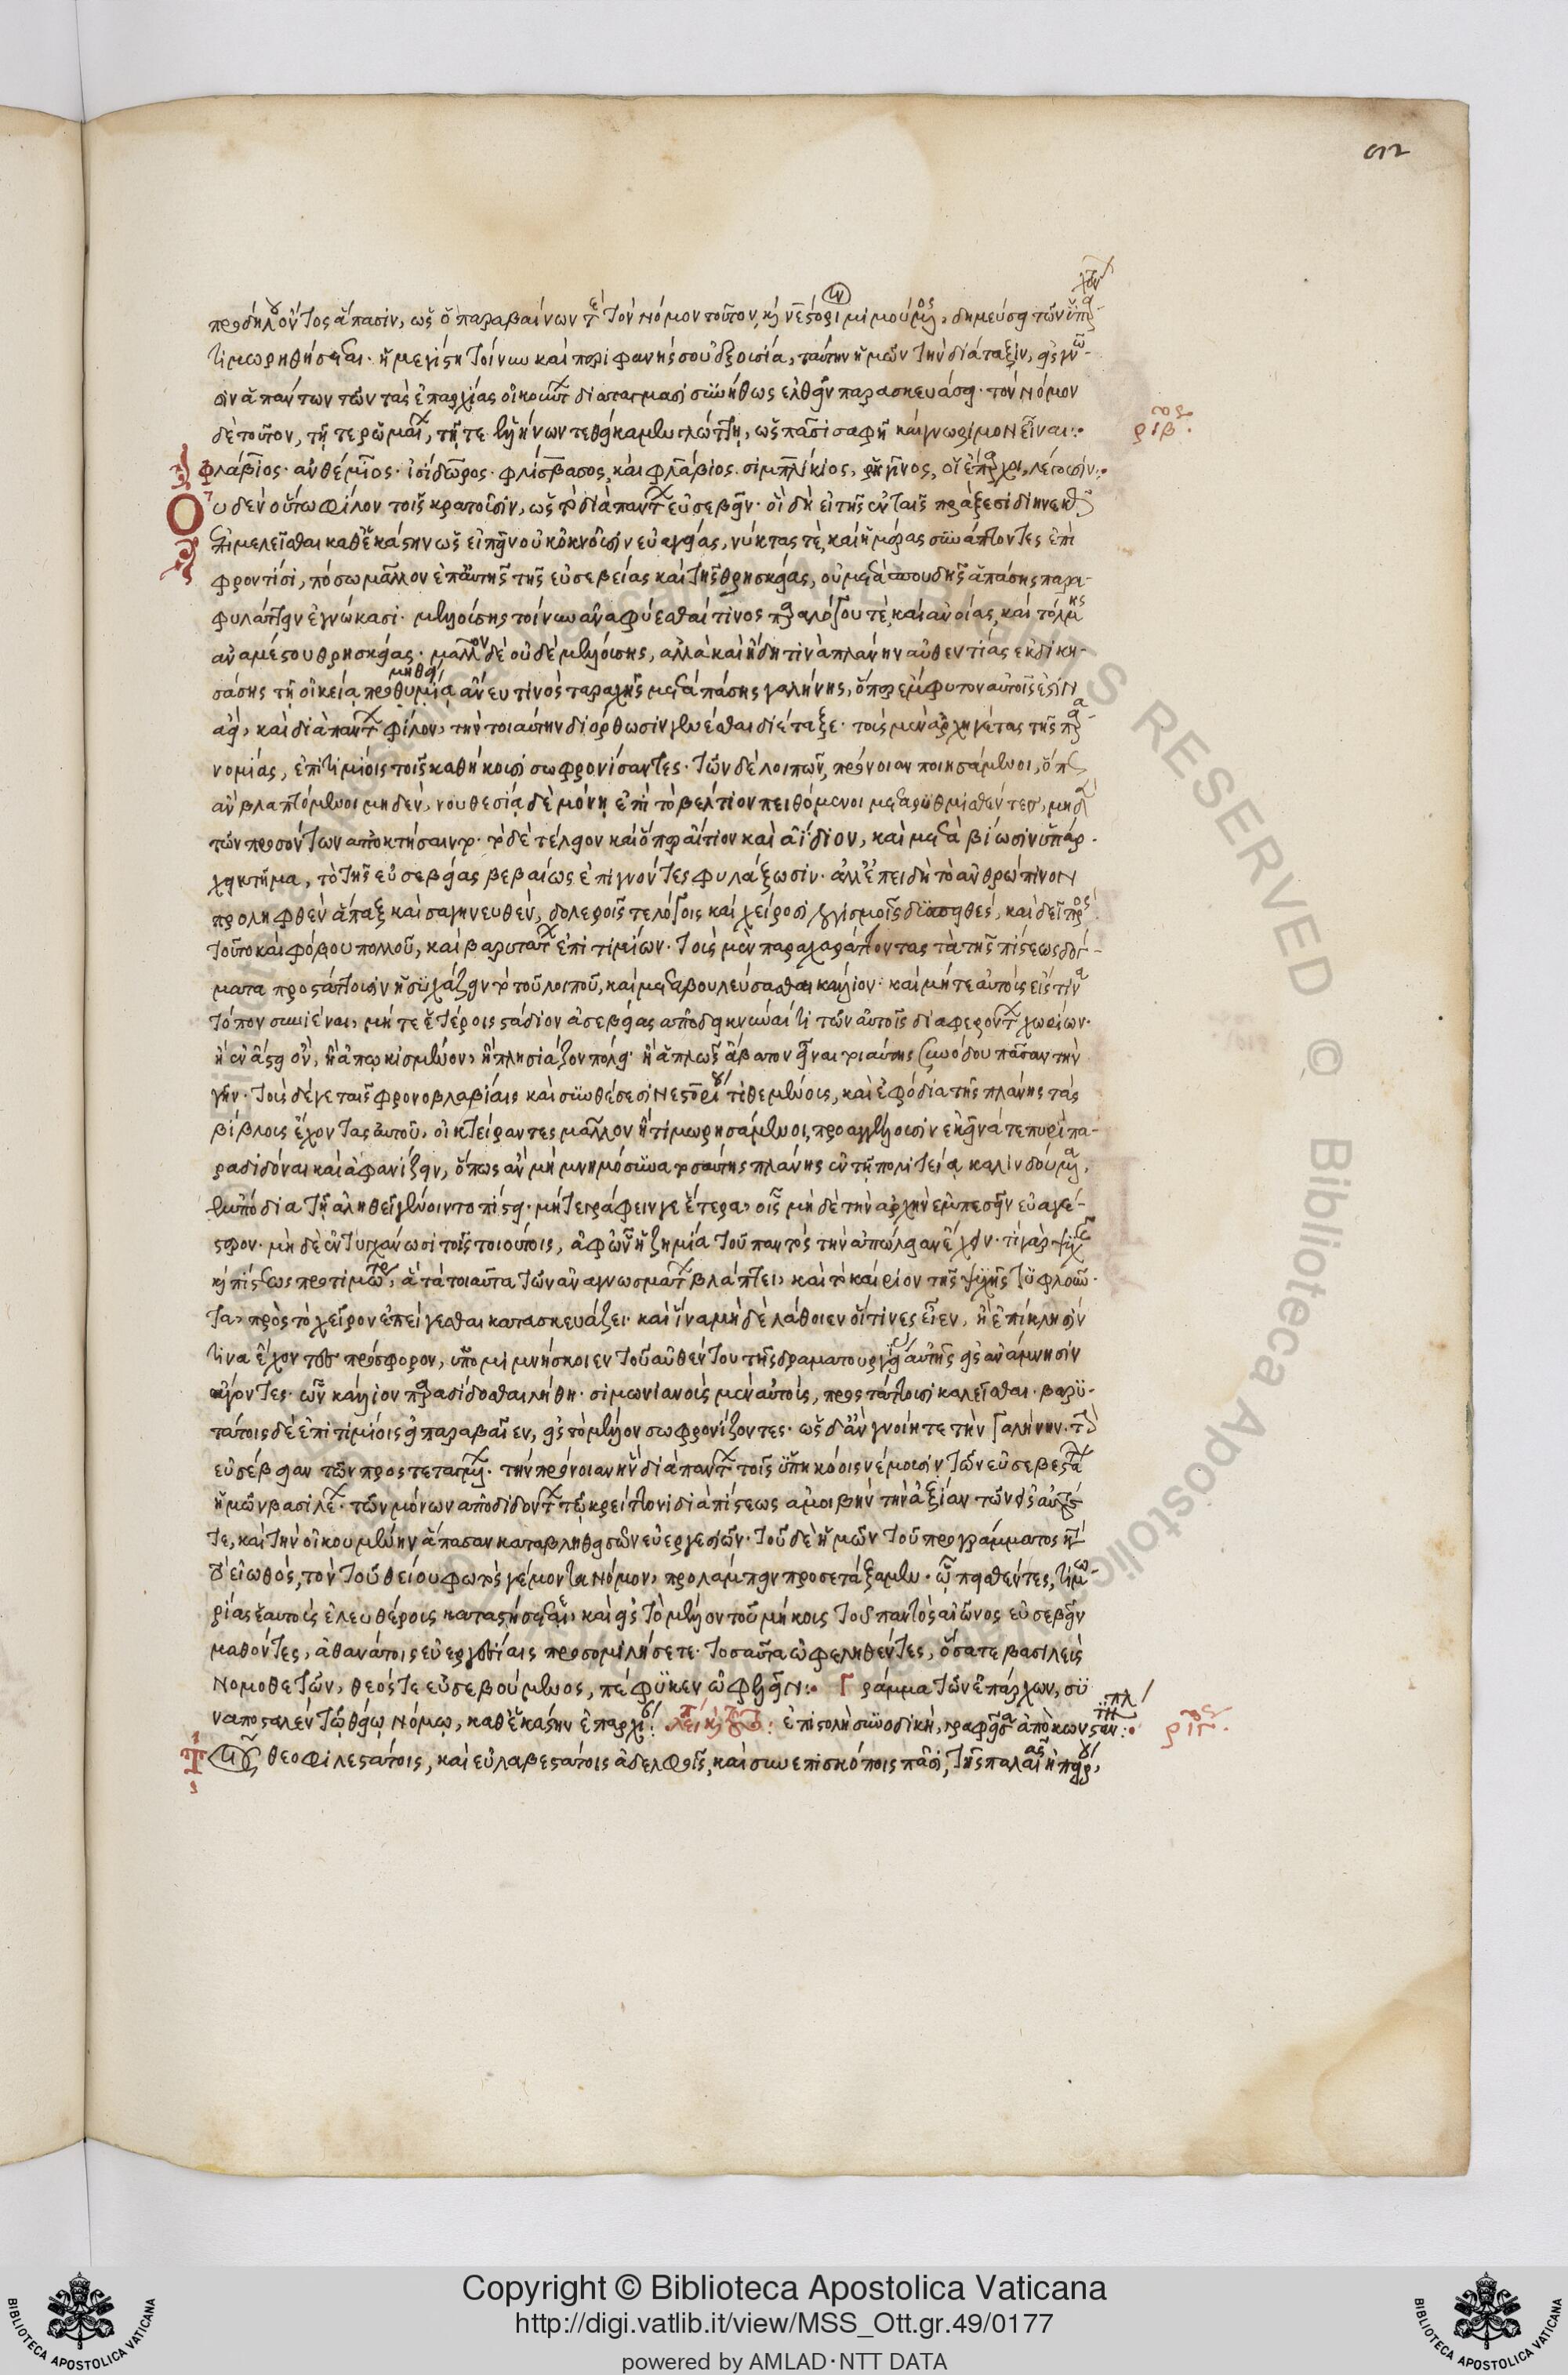 προδήλου ὄντος ἅπασιν, ὡς ὁ παραβαίνων τὸν νόμον τοῦτον, καὶ νεστορίῳ μιμούμενος, δημεύσει τῶν ὑπαρχόντων
τιμωρηθήσεται· ἡ μεγίστη τοίνυν καὶ περιφανής σου ἐξουσία, ταύτην ἡμῶν τὴν διάταξιν, εἰς γνῶ-
σιν ἁπάντων τῶν τὰς ἐπαρχίας οἰκούντων διατάγμασι συνήθως ἐλθεῖν παρασκευάσει· τὸν νόμον
δὲ τοῦτον, τῇ τε ῥωμαίων, τῇ τε ἑλλήνων τεθείκαμεν γλώττῃ, ὡς πᾶσι σαφῆ καὶ γνώριμον εἶναι:
ριβ
φλάβιος· ἀνθέμιος· ἰσίδωρος· φλ βάσσος, καὶ φλάβιος σιμπλίκιος, ῥηγῖνος, οἱ ἔπαρχοι, λέγουσιν:
Οὐδὲν οὕτω φίλον τοῖς κρατοῦσιν, ὡς τὸ διὰ πάντων εὐσεβεῖν· οἳ δὴ εἰ τῆς ἐν ταῖς πράξεσι διηνεκῶς
ἐπιμελεῖσθαι καθεκάστην ὡς εἰπεῖν οὐκ ὀκνοῦσιν εὐαγείας, νύκτας τὲ, καὶ ἡμέρας συνάπτοντες ἐπὶ
φροντίσι, πόσω μᾶλλον ἐπ' αὐτῆς τῆς εὐσεβείας καὶ τῆς θρησκείας, οὐ μετὰ σπουδῆς ἁπάσης παρα-
φυλάττειν ἐγνώκασι· μελλούσης τοίνυν ἀναφύεσθαί τινος παραλόγου τὲ, καὶ ἀνοίας, καὶ τόλμης
ἀναμέσου θρησκείας· μᾶλλον δὲ οὐδὲ μελλούσης, ἀλλὰ καὶ ἤδη τινὰ πλάνην αὐθεντίας ἐκδικη-
σάσης τῇ οἰκείᾳ προμηθείᾳ ἄνευ τινὸς ταραχῆς μετὰ πάσης γαλήνης, ὅπερ ἔμφυτον αὐτοῖς ἐστὶν
ἀεὶ, καὶ διὰ πάντων φίλον, τὴν τοιαύτην διόρθωσιν γενέσθαι διέταξε· τοὺς μὲν ἀρχηγέτας τῆς παρα-
νομίας, ἐπιτιμίοις τοῖς καθήκουσι σωφρονίσαντες· τῶν δὲ λοιπῶν, πρόνοιαν ποιησάμενοι, ὅπως
ἂν βλαπτόμενοι μηδὲν, νουθεσίᾳ δὲ μόνῃ ἐπὶ τὸ βέλτιον πειθόμενοι μεταρυθμισθέντες, μηδὲν
τῶν προσόντων ἀποκτήσαιντο· τὸ δὲ τέλειον καὶ ὅπερ αἴτιον καὶ ἀΐδιον, καὶ μετὰ βίωσιν ὑπάρ-
χει κτῆμα, τὸ τῆς εὐσεβείας βεβαίως ἐπιγνόντες φυλάξωσιν· ἀλλ' ἐπειδὴ τὸ ἀνθρώπινον
προληφθὲν ἅπαξ καὶ σαγηνευθὲν, δολεροῖς τε λόγοις καὶ χείροσι λογισμοῖς διασεισθὲν, καὶ δεῖ πρὸς
τοῦτο καὶ φόβου πολλοῦ, καὶ βαρυτάτων ἐπιτιμίων· τοὺς μὲν παραχαράττοντας τὰ τῆς πίστεως δόγ-
ματα προστάττουσιν ἡσυχάζειν τὸ τοῦ λοιποῦ, καὶ μεταβουλεύσασθαι κάλλιον· καὶ μήτε αὐτοὺς εἴς τινα
τόπον συνιέναι, μήτε ἑτέροις στάδιον ἀσεβείας ἀποδεικνύναί τι τῶν αὐτοῖς διαφερόντων χωρίων·
ἢ ἐν ἄστει ὂν, ἢ ἀπῳκισμένον, ἢ πλησιάζον πόλει· ἢ ἁπλῶς ἄβατον εἶναι τοιαύτης συνόδου πᾶσαν τὴν
γῆν· τοὺς δέ γε ταῖς φρενοβλαβίαις καὶ συνθέσεσι νεστορίου τεθειμένοις, καὶ ἐφόδια τῆς πλάνης τὰς
βίβλους ἔχοντας αὐτοῦ, οἰκτείραντες μᾶλλον ἢ τιμωρησάμενοι, προαγγέλλουσιν ἐκεῖνά τε πυρὶ πα-
ραδιδόναι καὶ ἀφανίζειν, ὅπως ἂν μὴ μνημόσυνα τοσαύτης πλάνης ἐν τῇ πολιτείᾳ καλινδούμενα,
ἐμπόδια τῇ ἀληθεῖ γένοιντο πίστει· μήτε γράφειν γε ἕτερα, οἷς μηδὲ τὴν ἀρχὴν ἐμπεσεῖν εὐαγέ-
στερον· μηδὲ ἐντυγχάνωσι τοῖς τοιούτοις, ἀφ' ὧν ἡ ζημία τοῦ παντὸς τὴν ἀπώλειαν ἔχει· τί γὰρ ψυχῆς
καὶ πίστεως προτιμώτερον, ἃ τὰ τοιαῦτα τῶν ἀναγνωσμάτων βλάπτει, καὶ τὸ καίριον τῆς ψυχῆς τυφλοῦν-
τα, πρὸς τὸ χεῖρον ἐπείγεσθαι κατασκευάζει· καὶ ἵνα μηδὲ λάθοιεν οἵτινες εἶεν, ἢ ἐπίκλησίν
τινα ἔχοντες πρόσφορον, ὑπομιμνήσκοιεν τοῦ αὐθέντου τῆς δραματουργίας αὐτῆς εἰς ἀνάμνησιν
ἄγοντες· ὧν κάλλιον παραδίδοσθαι λήθῃ· σιμωνιανοὺς μὲν αὐτοὺς, προστάττουσι καλεῖσθαι· βαρυ-
τάτοις δὲ ἐπιτιμίοις εἰ παραβαῖεν, εἰς τὸ μέλλον σωφρονίζοντες· ὡς δ' ἂν γνοίητε τὴν γαλήνην·
εὐσέβειαν τῶν προστεταγμένων· τὴν πρόνοιαν ἣν διὰ πάντων τοῖς ὑπηκόοις νέμουσιν τῶν εὐσεβεστάτων
ἡμῶν βασιλέων· τῶν μόνων ἀποδιδόντων τῷ κρείττονι διὰ πίστεως ἀμοιβὴν τὴν ἀξίαν τῶν εἰς αὐτούς
τε, καὶ τὴν οἰκουμένην ἅπασαν καταβληθεισῶν εὐεργεσιῶν· τοῦδε ἡμῶν τοῦ προγράμματος
εἰωθὸς, τὸν τοῦ θείου φωτὸς γέμοντα νόμον, προλάμπειν προσετάξαμεν· ᾧ πεισθέντες, τιμω-
ρίας ἑαυτοὺς ἐλευθέρους καταστήσατε, καὶ εἰς τὸ μέλλον τοῦ μήκους τοῦ παντὸς αἰῶνος εὐσεβεῖν
μαθόντες, ἀθανάτοις εὐεργεσίαις προσομιλήσετε· τοσαῦτα ὠφεληθέντες, ὅσα τε βασιλεὺς
νομοθετῶν, θεός τε εὐσεβούμενος, πέφυκεν ὠφελεῖν: Γράμμα τῶν ἐπάρχων, συ-
ναποσταλὲν τῷ θείῳ νόμῳ, καθ' ἑκάστην ἐπαρχίαν: ἐπιστολὴ συνοδικὴ, γραφεῖσα ἀπὸ κωνσταντινουπόλεως:
ριγ
Τοῖς θεοφιλεστάτοις, καὶ εὐλαβεστάτοις ἀδελφοῖς, καὶ συνεπισκόποις πᾶσι, τῆς παλαιᾶς ἠπείρου,
Copyright © Biblioteca Apostolica Vaticana
http://digi.vatlib.it/view/MSS_Ott.gr.49/0177
powered by AMLAD·NTT DATA